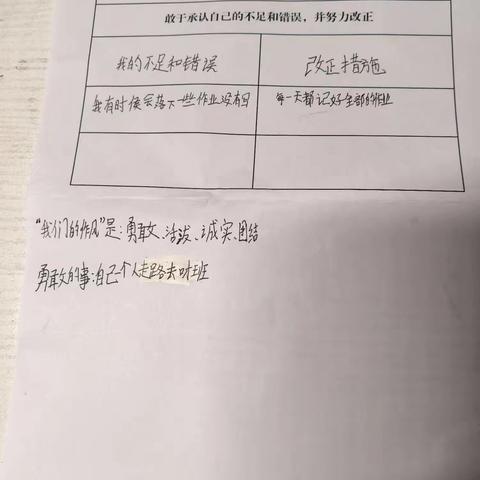 敢于承认自己的不足和错误，并努力改正
我的不足和错误 改正措施
我有时候会落下一些作业没有写 每一天都记好全部的作业
"我们的作风"是:勇敢、活泼、诚实、团结
勇敢的事:自己个人走路去